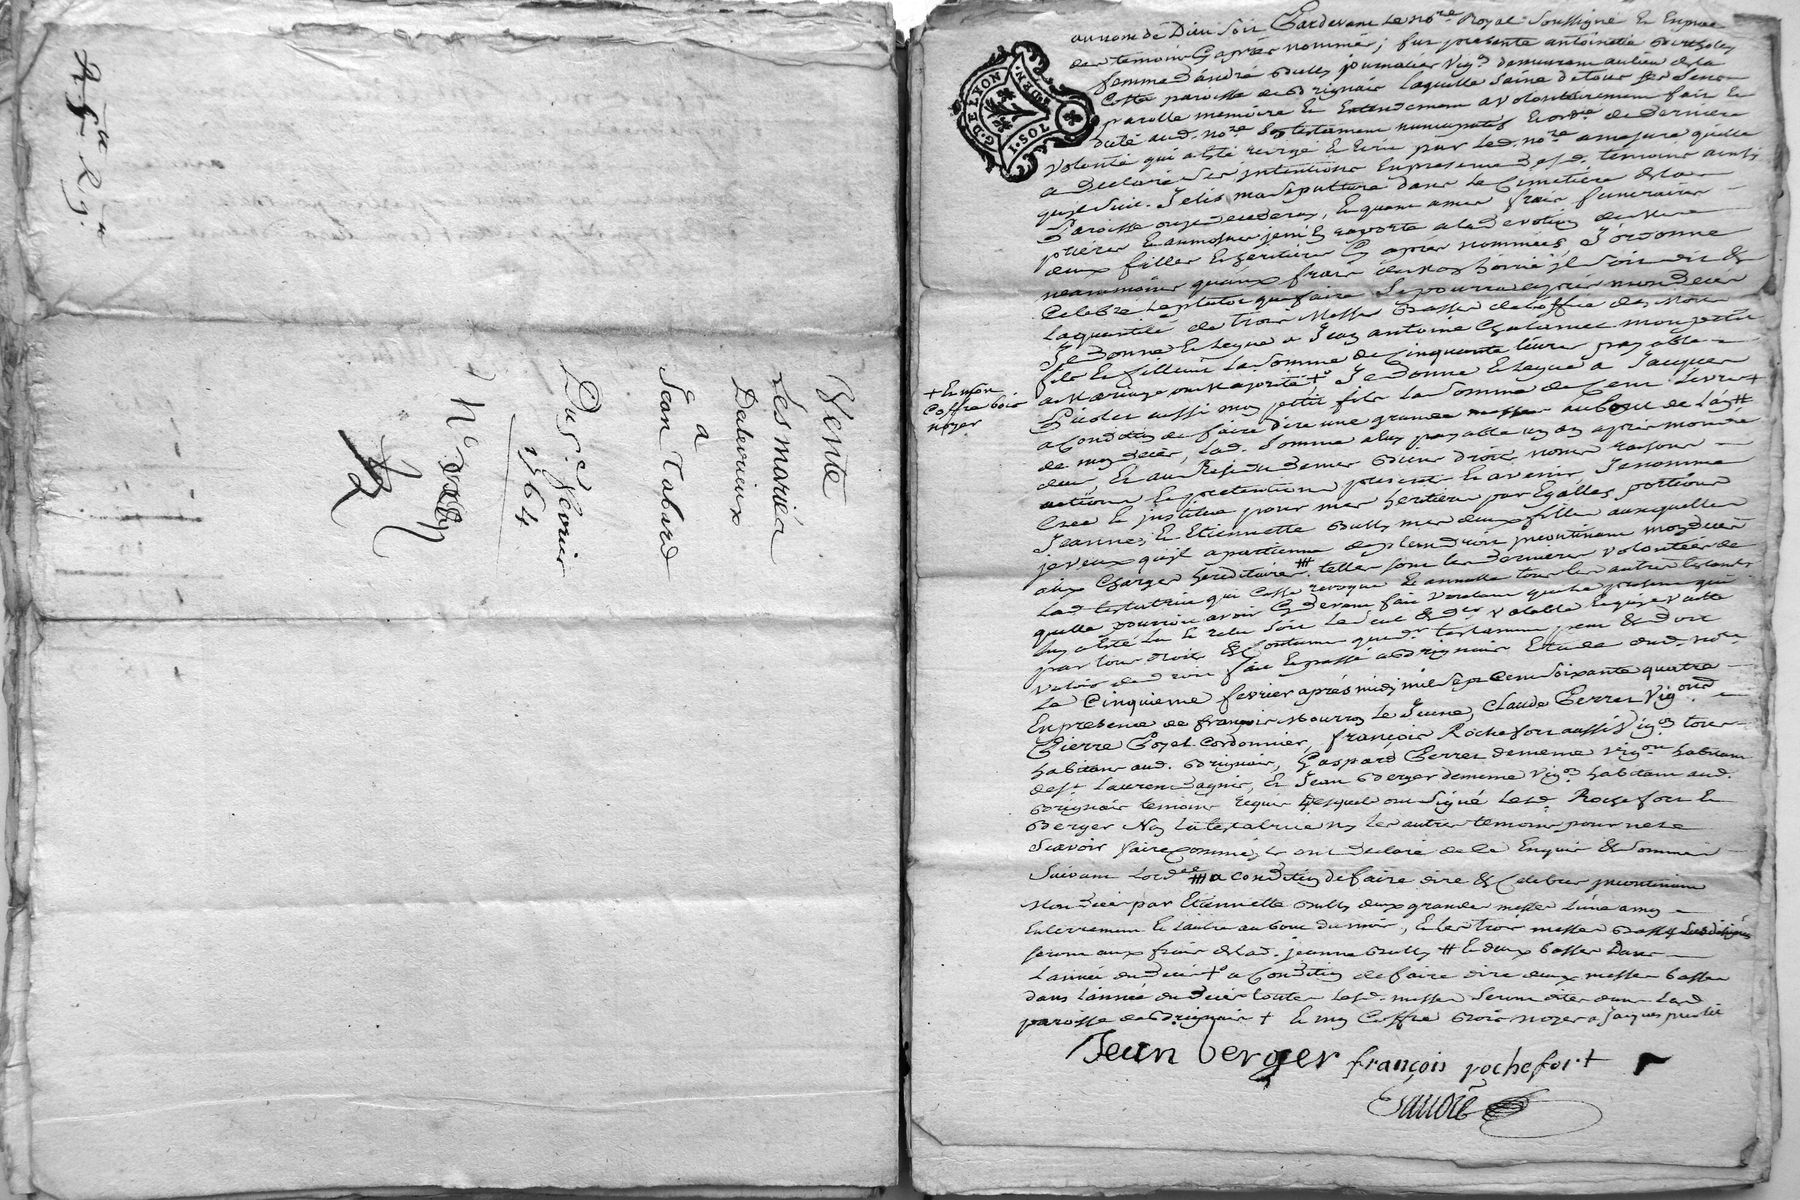 Vente
Les mariés
Delorieux
a
Jean Tabard
Du 5e fevrier
1764
Ne
G. DE LYON
1. SOL
au nom de Dieu soit Pardevant le nore Royal Soussigné En presence
des temoins Cy apres nommés, fut presente antoinette
femme d'andré Bully journalier demeurant au lieu de la
Coste paroisse de Brignais laquelle saine de tous ses sens
parolle memoire et Entendement a volontairement fait et
dicté aud. nore Son testament nuncupatif et ordre de derniere
volonté qui a Eté redigé et Ecrit par led. nore amesure quelle
a declaré Ses intentions En presence desd. temoins ainsi
quil Suit. Jelis ma Sepulture dans le Cimetière de la
Paroisse ou je decederay, Et quant a mes frais funeraires
prières et aumosnes je m'en raporte a la devotion de mes
deux filles heritières Cy après nommées, J'ordonne
neanmoins quaux frais de mon hoirie jl soit dit &
Celebré le plutot que faire Se pourra après mon decès
la quantité de trois Messes Basses de l'office des Morts
Je donne et legue a Jean antoine Chatanier mon petit
fils et filleul la Somme de Cinquante livres payable
a Mariage ou Majorité + Je donne et legue a Jacques
+ Et mon
Coffre bois
noyer
aussi mon petit fils la Somme de Cent livres +
a Condition de faire dire une grande messe au bout de l'an #
de mon decès, lad. Somme a luy payable un an après mon de
ces Et au Residu de mes Biens droits noms raisons
actions et pretentions presents et avenir Je nomme
Crée et institue pour mes heritieres par Egalles portions
Jeanne et Etiennette Bully mes deux filles auxquelles
je veux quil apartienne de plein droit jncontinent mon decès
aux Charges hereditaires ### telles sont les dernieres volontées de
Lad. testatrice qui Casse revoque Et annulle tous les autres testaments
quelle pourroit avoir Cy devant fait voulant que le present qui
luy a Eté lu et relu soit le seul & der valable Et quil vaille
par tous droits & Coutume que dr. testament peut & doit
valoir de droit fait Et passé a Brignais Etude dud. nore
Le Cinquieme fevrier après midy mil Sept Cent Soixante quatre
En presence de françois Mourron le Jeune, Claude Perret Vigon
Pierre Goyet Cordonnier, françois Rochefort aussi Vigon tous
habitans aud. Brignais, Gaspard Perret de meme vigon habitant
de St Laurent dagnis, Et Jean Berger de meme Vigon habitant aud.
Brignais temoins requis Desquels ont Signé lesd. Rochefort Et
Berger Non la testatrice ny les autres temoins pour ne le
Scavoir faire comme ils ont declaré de ce Enquis & Sommés
Suivant Lordce ### a condition de faire dire & Celebrer jncontinent
Mon decès par Etiennette Bully deux grandes messes L'une a mon
Enterrement Et L'autre au bout du mois, Et les trois messes Basses
seront aux frais de lad. jeanne Bully # Et deux basses dans
L'année du decès +o a Condition de faire dire deux messes basses
dans L'année du decès toutes lesd. messes Seront dites dans lad.
paroisse de Brignais + Et mon Coffre Bois noyer a Jacques
Jean berger françois rochefort